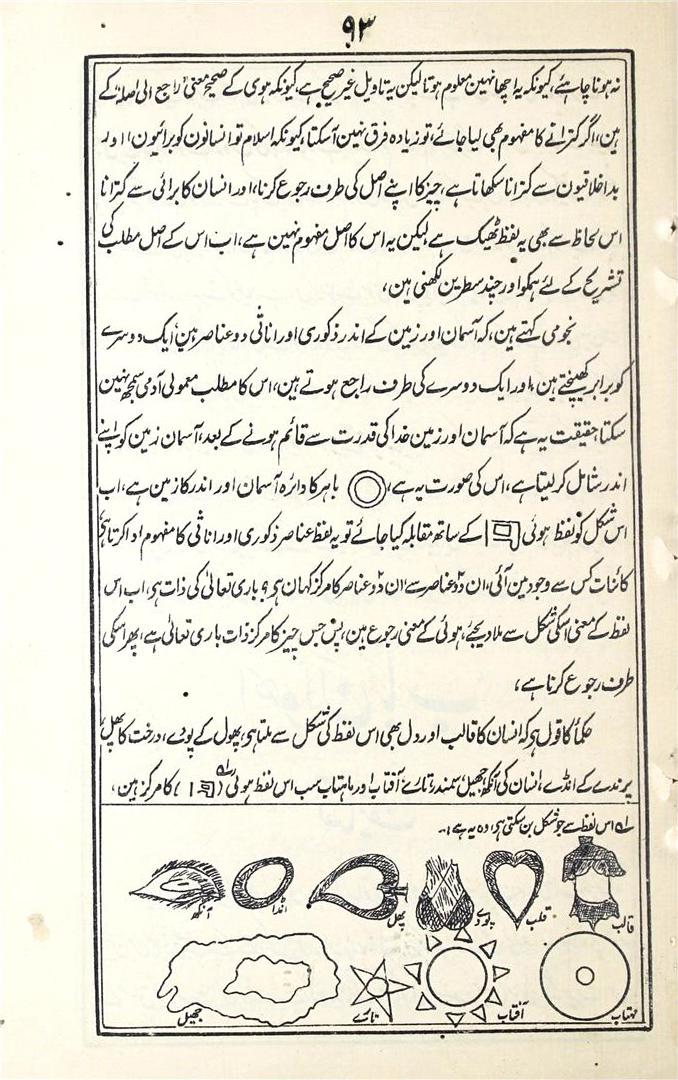 ۹۳
نہ ہونا چاہئے، کیونکہ یہ اچھا نہین معلوم ہوتا لیکن یہ تاویل غیر صحیح ہے، کیونکہ ہوی کے صحیح معنی "راجع الی اصلہ" کے
ہین، اگر کترانے کا مفہوم بھی لیا جائے، تو زیادہ فرق نہین آسکتا، کیونکہ اسلام تو انسانون کو برائیون اور
بداخلاقیون سے کترانا سکھاتا ہے، چیز کا اپنے اصل کی طرف رجوع کرنا، اور انسان کا برائی سے کترانا
اس لحاظ سے بھی یہ لفظ ٹھیک ہے لیکن یہ اس کا اصل مفہوم نہین ہے، اب اس کے اصل مطلب کی
تشریح کے لئے ہمکو اور چند سطرین لکھنی ہین،
نجومی کہتے ہین، کہ آسمان اور زمین کے اندر ذکوری اور اناثی دو عناصر ہین، ایک دوسرے
کو برابر کھینچتے ہین، اور ایک دوسرے کی طرف راجع ہوتے ہین، اس کا مطلب معمولی آدمی سمجھ نہین
سکتا، حقیقت یہ ہے کہ آسمان اور زمین خدا کی قدرت سے قائم ہونے کے بعد، آسمان زمین کو اپنے
اندر شامل کر لیتا ہے، اس کی صورت یہ ہے، باہر کا دائرہ آسمان اور اندر کا زمین ہے، اب
اس شکل کو لفظ ہوئی 回 کے ساتھ مقابلہ کیا جائے تو یہ لفظ عناصر ذکوری اور اناثی کا مفہوم ادا کرتا ہی
کائنات کس سے وجود مین آئی، ان دو عناصر سے، ان دو عناصر کا مرکز کہان ہی؟ باری تعالیٰ کی ذات ہی، اب اس
لفظ کے معنی اسکی شکل سے ملا دیجئے، ہوئی کے معنی رجوع ہین، پس جس چیز کا مرکز ذات باری تعالیٰ ہے، پھر اسکی
طرف رجوع کرنا ہے،
حکما کا قول ہی کہ انسان کا قالب اور دل بھی اس لفظ کی شکل سے ملتا ہی، پھول کے پودے، درخت کا پھل،
پرندے کے انڈے، انسان کی آنکھ، جھیل، سمندر، تارے، آفتاب اور ماہتاب سب اس لفظ ہوئی (回) کا مرکز ہین،
لہ اس لفظ سے جو شکل بن سکتی ہی، وہ یہ ہے:۔
قالب قلب پودے پھل انڈا آنکھ
مہتاب آفتاب تارے جھیل